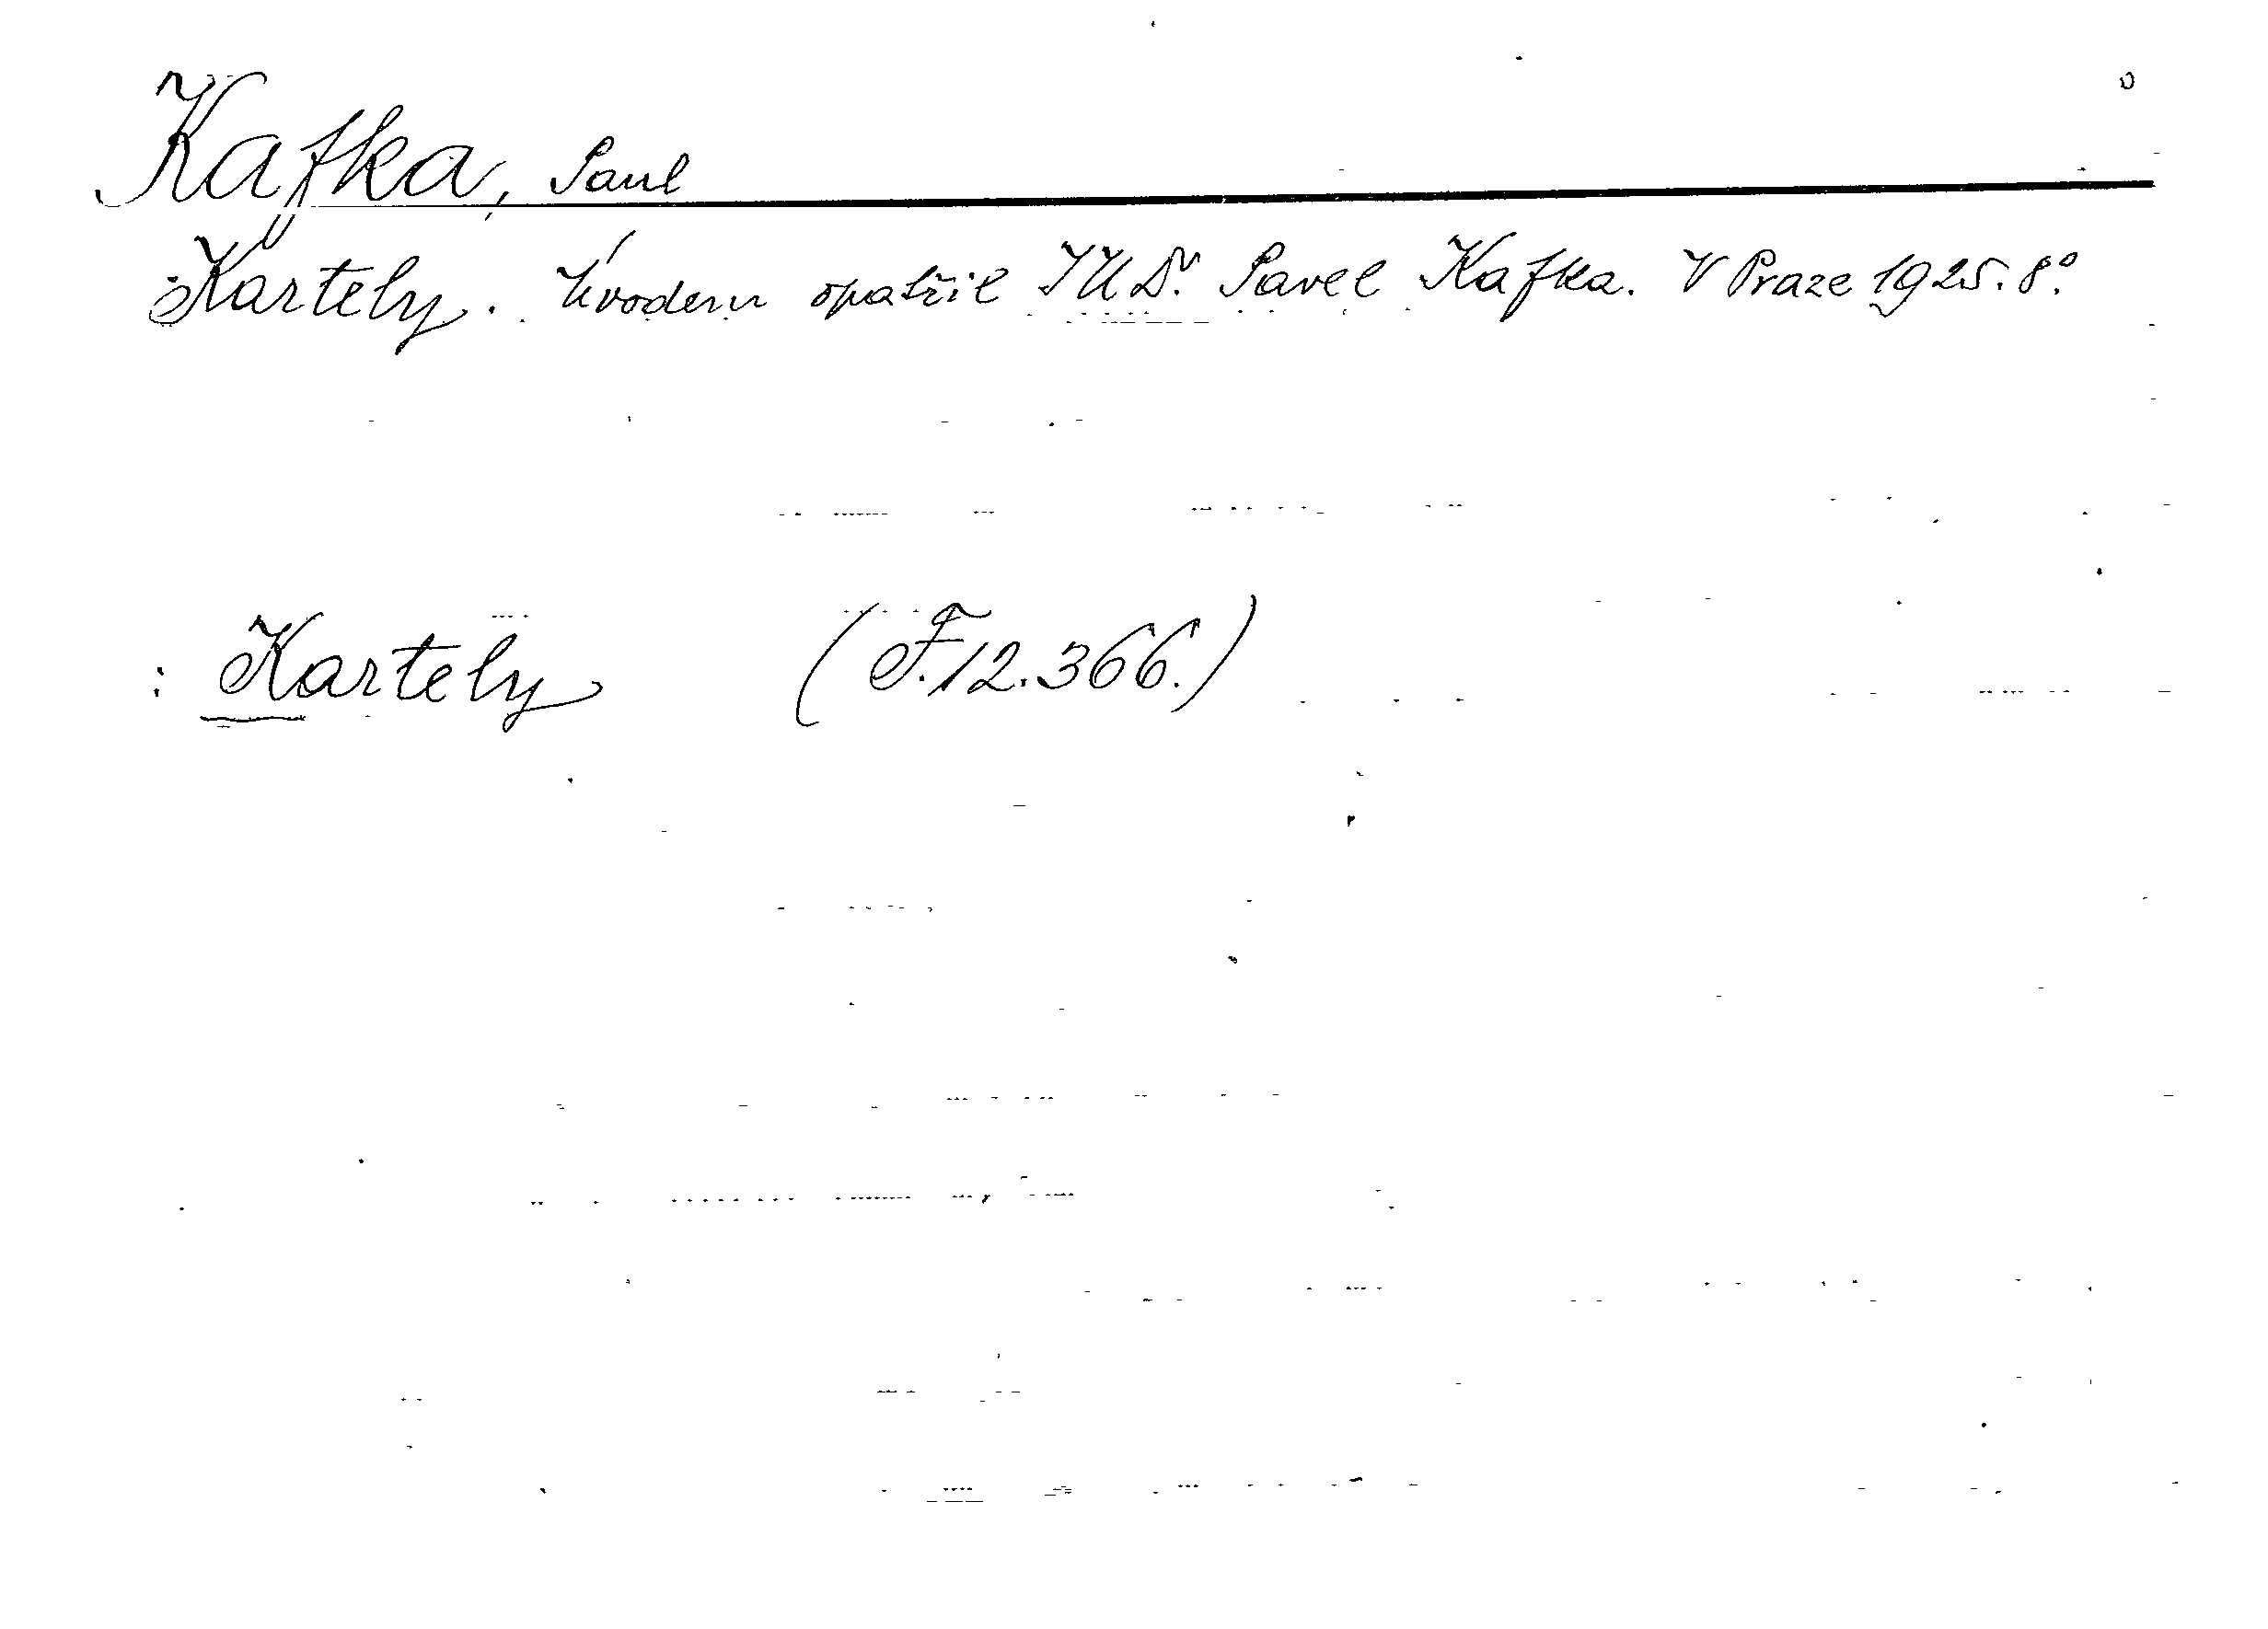 Kafka, Paul
Kartely. Úvodem opatřil JUDr. Pavel Kafka. V Praze 1925. 8°.
: Kartely (F.12.366.)